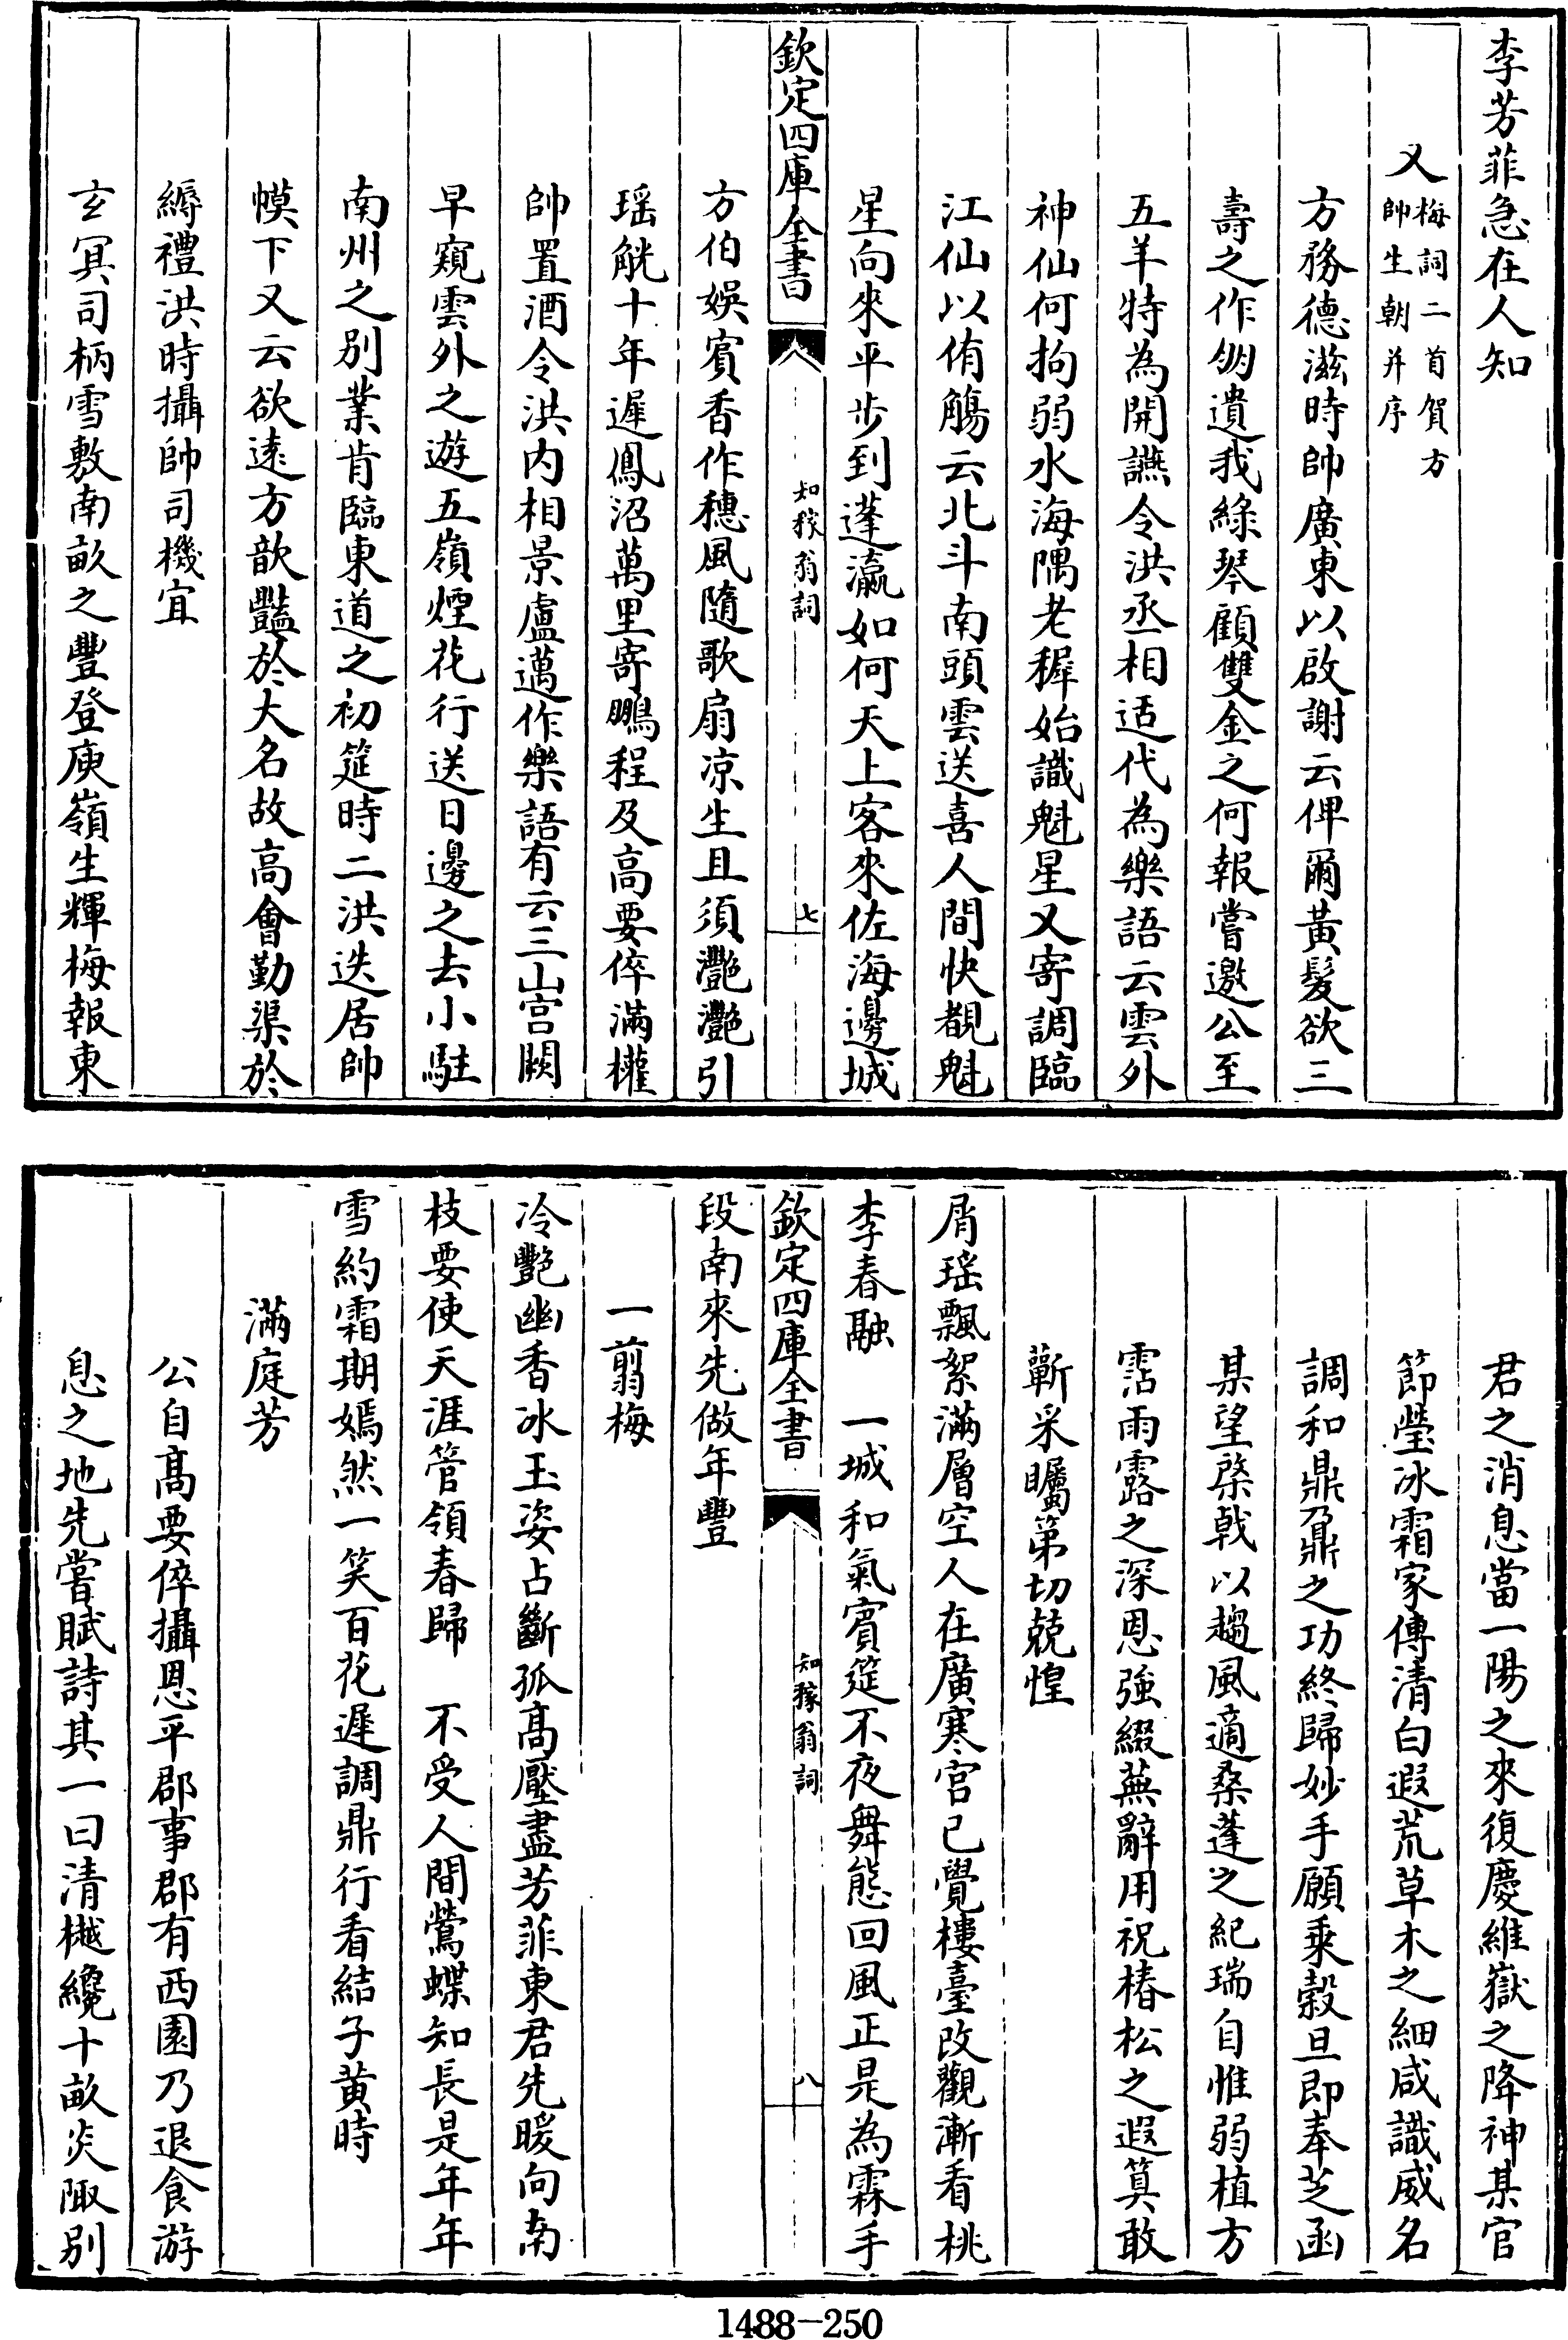 李芳菲急在人知
又梅詞二首賀方
帥生朝并序
方務德滋時帥廣東以啟謝云俾爾黃髮欲三
壽之作朋遺我綠琴顧雙金之何報嘗邀公至
五羊特為開讌令洪丞相适代為樂語云雲外
神仙何拘弱水海隅老穉始識魁星又寄調臨
江仙以侑觴云北斗南頭雲送喜人間快覩魁
星向來平步到蓬瀛如何天上客來佐海邊城
欽定四庫全書
知稼翁詞
七
方伯娛賓香作穗風隨歌扇凉生且須灔灔引
瑶觥十年遲鳳沼萬里寄鵬程及高要倅滿權
帥置酒令洪内相景盧邁作樂語有云三山宫闕
早窺雲外之遊五嶺煙花行送日邊之去小駐
南州之别業肯臨東道之初筵時二洪迭居帥
幙下又云欲遠方歆豔於大名故高會勤渠於
縟禮洪時攝帥司機宜
玄冥司柄雪敷南畝之豐登庾嶺生輝梅報東
君之消息當一陽之來復慶維嶽之降神某官
節瑩冰霜家傳清白遐荒草木之細咸識威名
調和鼎鼐之功終歸妙手願乘穀旦即奉芝函
某望棨戟以趨風適桑蓬之紀瑞自惟弱植方
霑雨露之深恩強綴蕪辭用祝椿松之遐算敢
蘄采矚第切兢惶
屑瑶飄絮滿層空人在廣寒宫已覺樓臺改觀漸看桃
李春融　一城和氣賓筵不夜舞態回風正是為霖手
欽定四庫全書
知稼翁詞
八
段南來先做年豐
一翦梅
冷艷幽香冰玉姿占斷孤高壓盡芳菲東君先暖向南
枝要使天涯管領春歸　不受人間鶯蝶知長是年年
雪約霜期嫣然一笑百花遲調鼎行看結子黄時
滿庭芳
公自高要倅攝恩平郡事郡有西園乃退食游
息之地先嘗賦詩其一曰清樾纔十畝炎陬别
1488-250